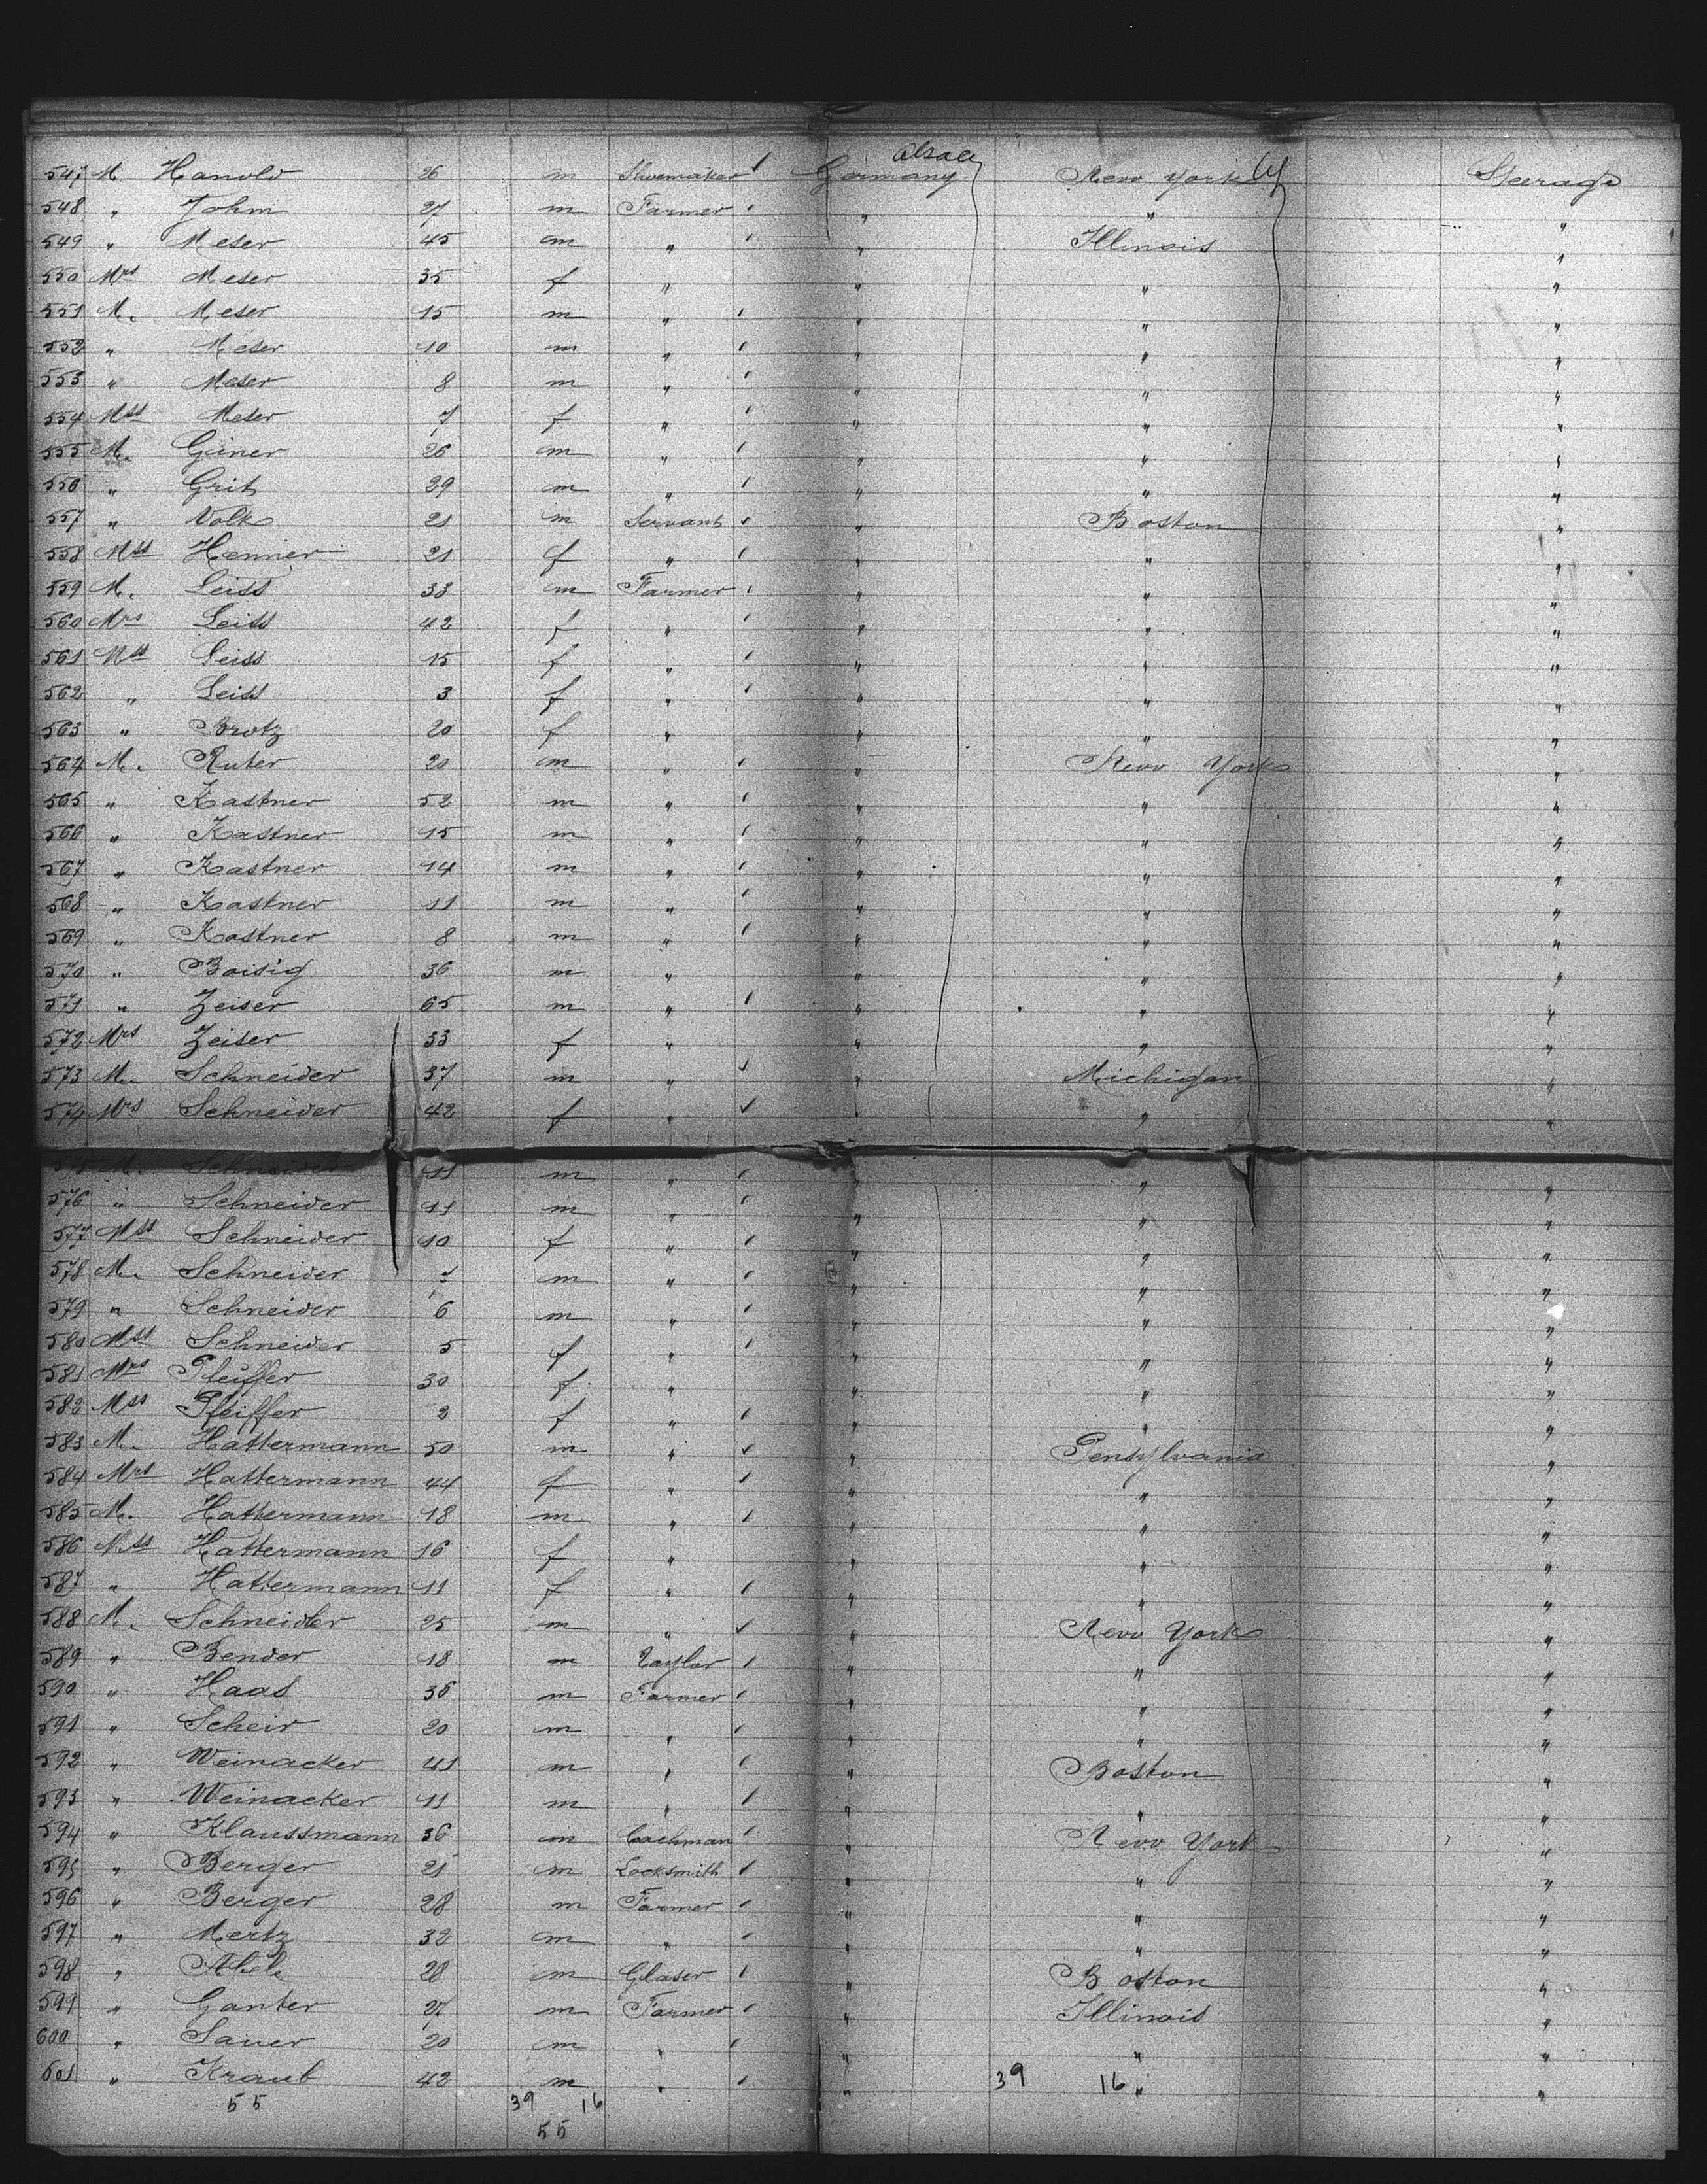 Alsace
547 M Hanold 26 m Shoemaker Germany New York Steerage
548 " Johm 27 m Farmer " " "
549 " Meser 45 m " " Illinois "
550 Mrs Meser 35 f " " " "
551 M. Meser 15 m " " " "
552 " Meser 10 m " " " "
553 " Meser 8 m " " " "
554 Mss Meser 7 f " " " "
555 M. Giner 26 m " " " "
556 " Grit 29 m " " " "
557 " Volk 21 m Servant " Boston "
558 Mss Henner 21 f " " " "
559 M. Leiss 33 m Farmer " " "
560 Mrs Leiss 42 f " " " "
561 Mss Leiss 15 f " " " "
562 " Leiss 3 f " " " "
563 " Brotz 20 f " " " "
564 M. Ruter 20 m " " New York "
565 " Kastner 52 m " " " "
566 " Kastner 15 m " " " "
567 " Kastner 14 m " " " "
568 " Kastner 11 m " " " "
569 " Kastner 8 m " " " "
570 " Boisig 36 m " " " "
571 " Zeiser 65 m " " " "
572 Mrs Zeiser 53 f " " " "
573 M. Schneider 37 m " " Michigan "
574 Mrs Schneider 42 f " " " "
575 M. Schneider 11 m " " " "
576 " Schneider 11 m " " " "
577 Mss Schneider 10 f " " " "
578 M. Schneider 7 m " " " "
579 " Schneider 6 m " " " "
580 Mss Schneider 5 f " " " "
581 Mrs Pfeiffer 30 f " " " "
582 Mss Pfeiffer 2 f " " " "
583 M. Hattermann 50 m " " Pensylvania "
584 Mrs Hattermann 44 f " " " "
585 M. Hattermann 18 m " " " "
586 Mss Hattermann 16 f " " " "
587 " Hattermann 11 f " " " "
588 M. Schneider 25 m " " New York "
589 " Bender 18 m Taylor " " "
590 " Haas 36 m Farmer " " "
591 " Scheir 20 m " " " "
592 " Weinacker 41 m " " Boston "
593 " Weinacker 11 m " " " "
594 " Klaussmann 36 m Coachman " New York "
595 " Berger 21 m Locksmith " " "
596 " Berger 28 m Farmer " " "
597 " Mertz 32 m " " " "
598 " Abele 28 m Glaser " Boston "
599 " Ganter 27 m Farmer " Illinois "
600 " Sauer 20 m " " " "
601 " Kraut 42 m " " " "
39 16
55 39 16
55